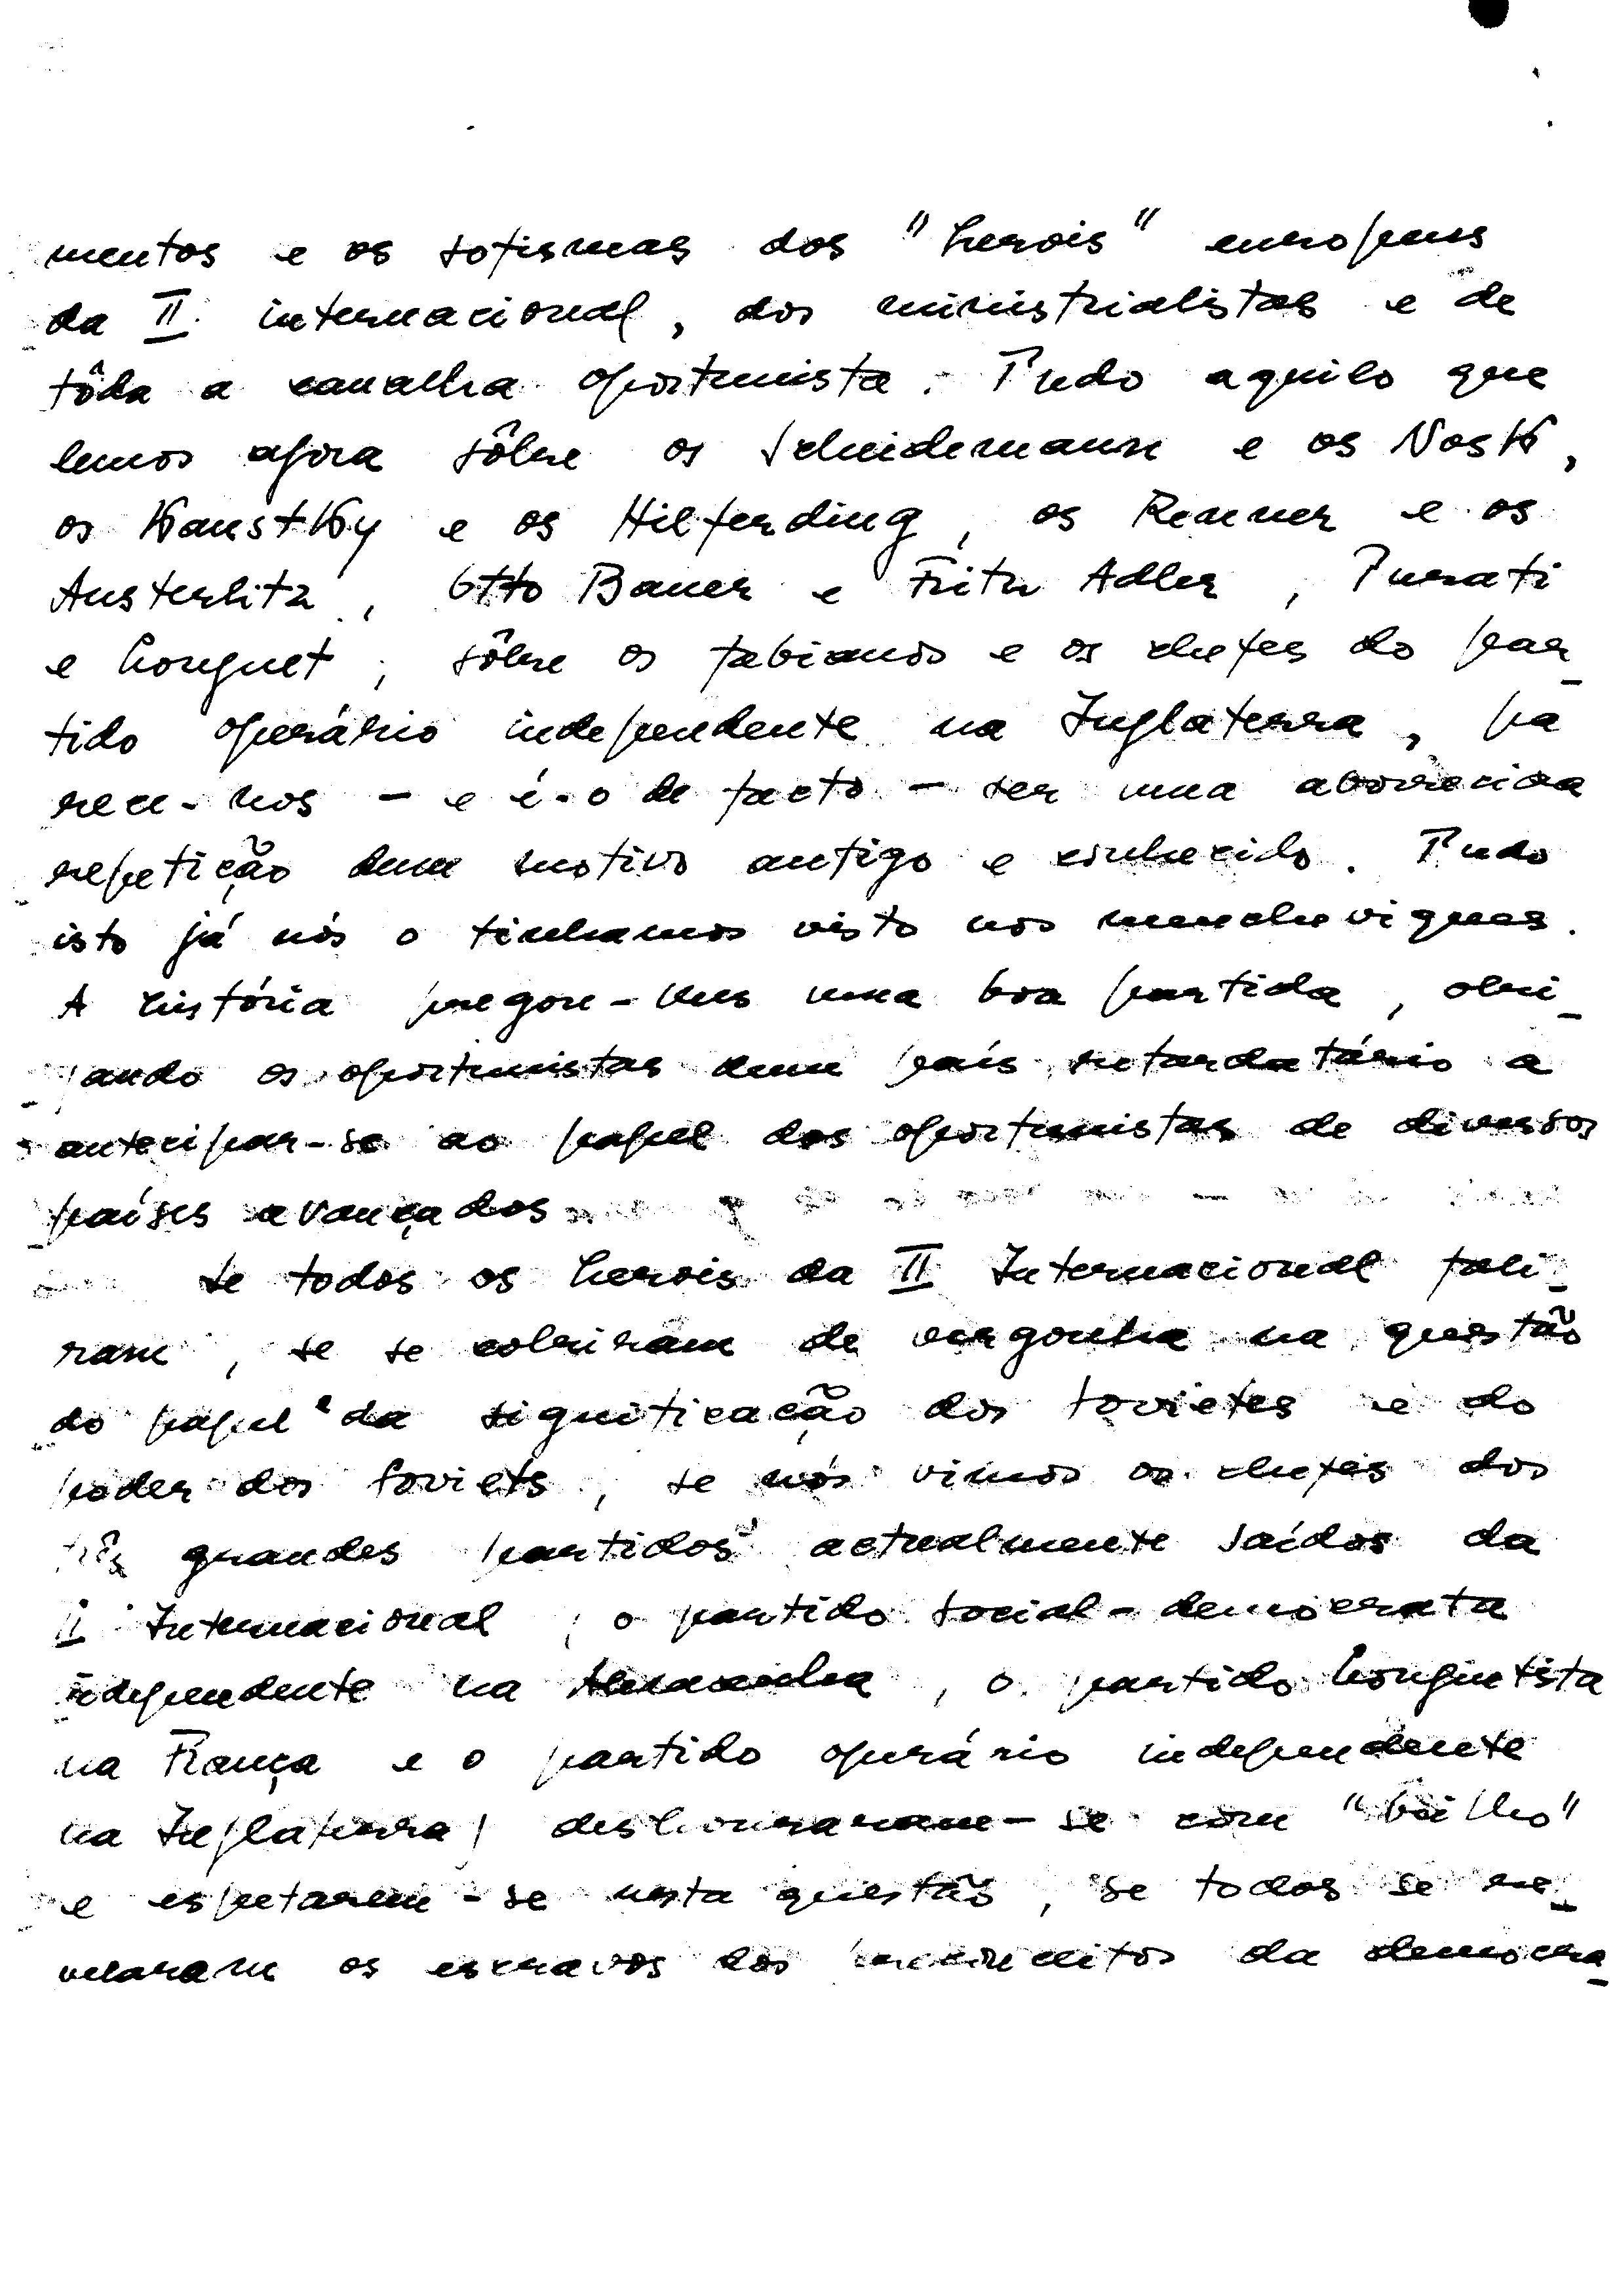 mentos e os sofismas dos "herois" europeus
da II internacional, dos ministrialistas e de
tôda a canalha oportunista. Tudo aquilo que
lemos agora sôbre os Scheidemann e os Nosk,
os Kaustky e os Hilferding, os Renner e os
Austerlitz, Otto Bauer e Fritz Adler, Turati
e Longuet; sôbre os fabianos e os chefes do par_
tido operário independente na Inglaterra, pa
rece-nos - e é-o de facto - ser uma aborrecida
repetição dum motivo antigo e conhecido. Tudo
isto já nós o tinhamos visto nos mencheviques.
A história pregou-lhes uma boa partida, obri_
gando os oportunistas dum país retardatário a
antecipar-se ao papel dos oportunistas de diversos
países avançados
Se todos os herois da II Internacional fali_
ram, se se cobriram de vergonha na questão
do papel e da significação dos sovietes e do
poder dos Soviets, se nós vimos os chefes dos
três grandes partidos actualmente saídos da
II Internacional, o partido social-democrata
idependente na Alemanha, o partido Longuetista
na França e o partido operário independente
na Inglaterra) deshonraram-se com "brilho"
e espetarem-se nesta questão, se todos se re_
velaram os escravos dos preconceitos da democra_